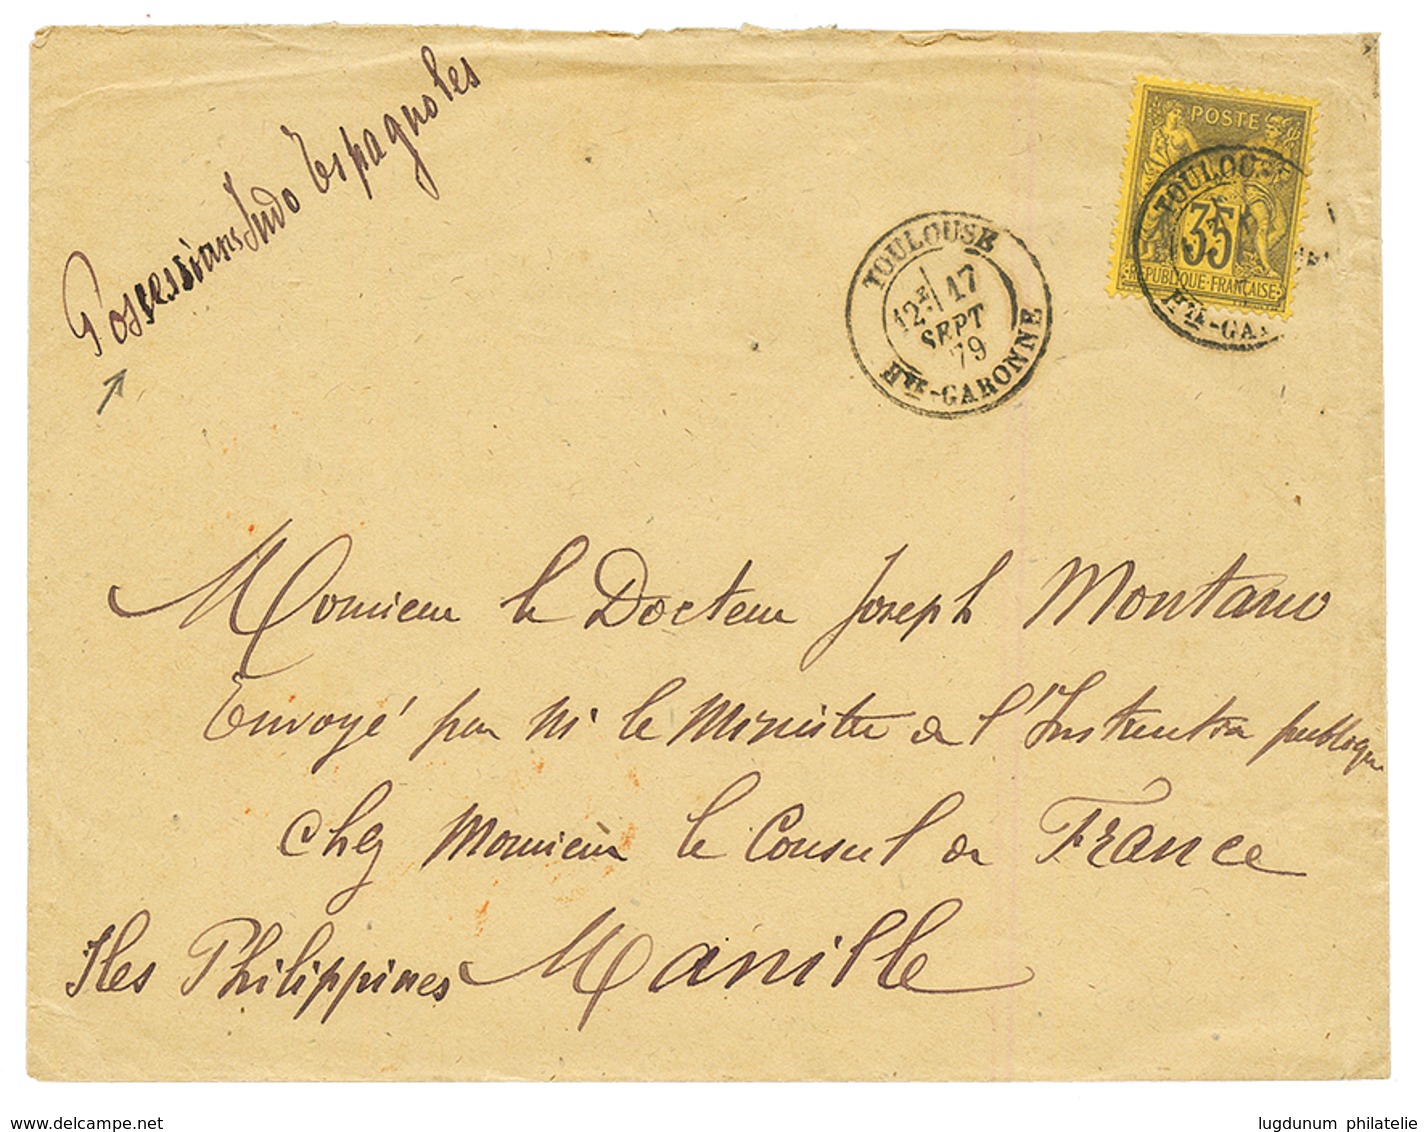 Possessions Indo Espagnoles
POSTE
35
REPUBLIQUE·FRANÇAISE
TOULOUSE
Hte-GA
TOULOUSE
12E 17
SEPT
79
Hte-GARONNE
Monsieur le Docteur Joseph Montano
Envoyé par Mr le Ministre de l'Instruction publique
chez Monsieur le Consul de France
Iles Philippines Manille
www.delcampe.net
lugdunum philatelie